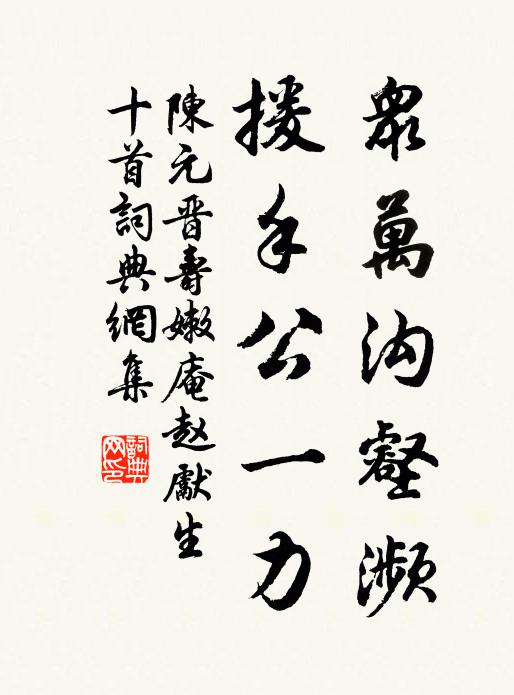 衆萬沟壑瀕
援手公一力
陳元晋壽嫩庵赵獻生
十首詞典網集
詞典网印